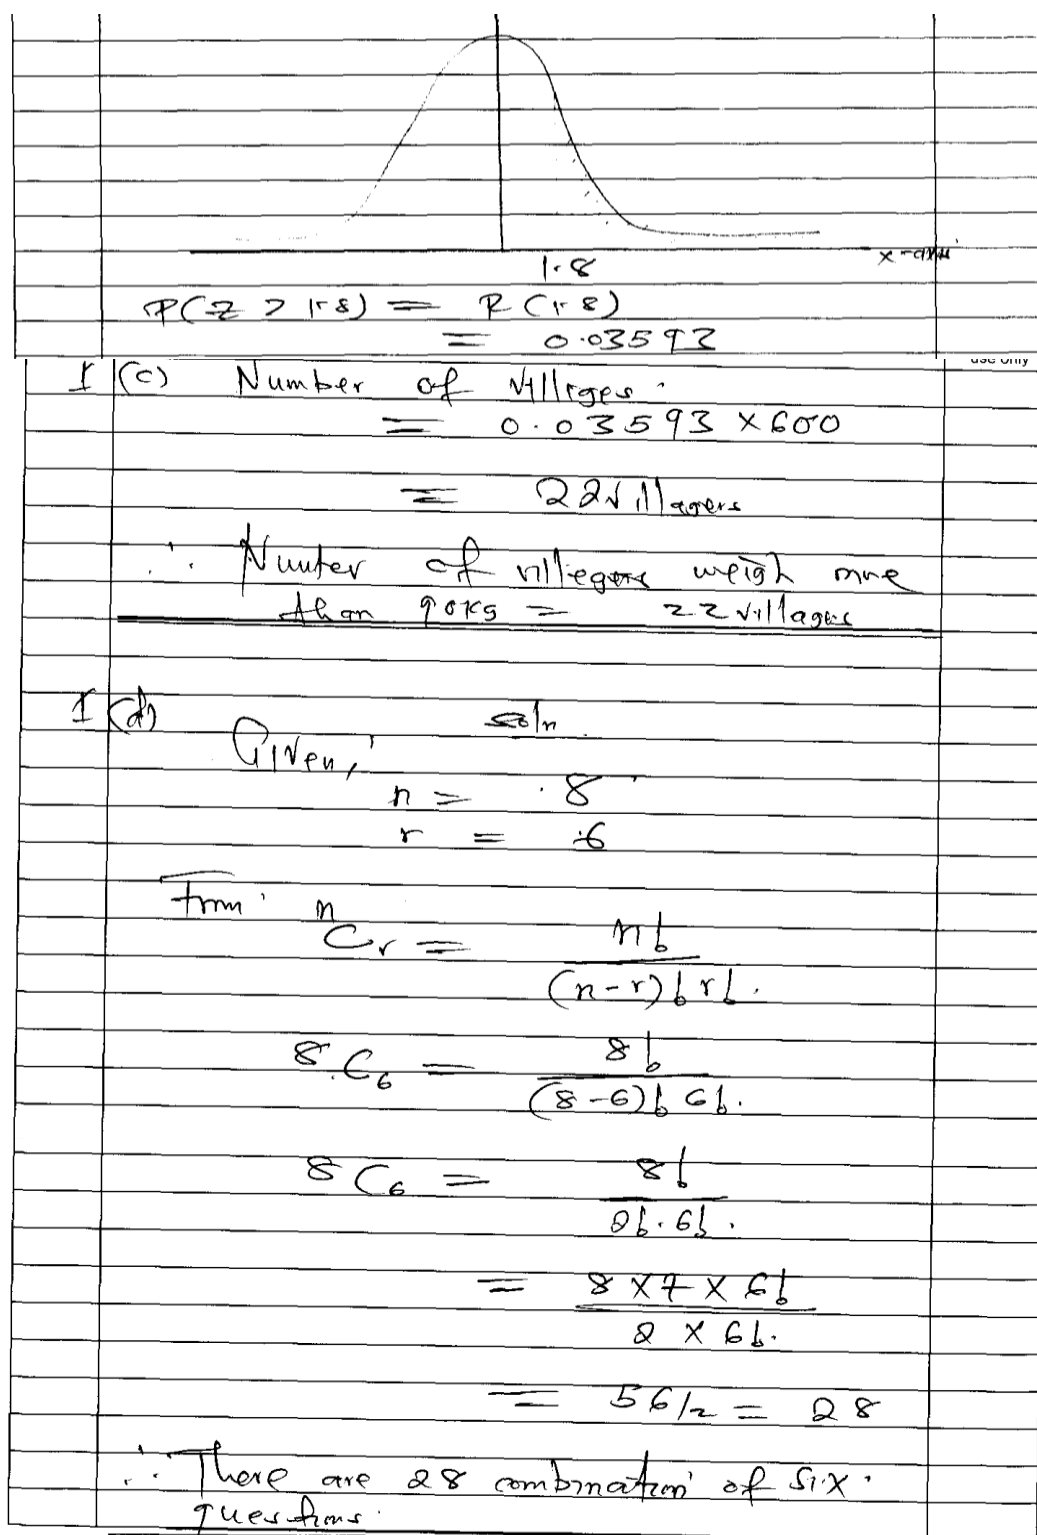 1.8
x-axis
P(Z > 1.8) = R(1.8)
= 0.03593
use only
1 (c) Number of villages.
= 0.03593 x 600
= 22 villagers
∴ Number of villegers weigh more
than 90kg = 22 villages
1 (d) soln
Given,
n = 8
r = 6
From nCr = n!
(n-r)! r!.
8C6 = 8!
(8-6)! 6!.
8C6 = 8!
2!. 6!.
= 8 x 7 x 6!
2 x 6!.
= 56/2 = 28
∴ There are 28 combination of six.
questions.